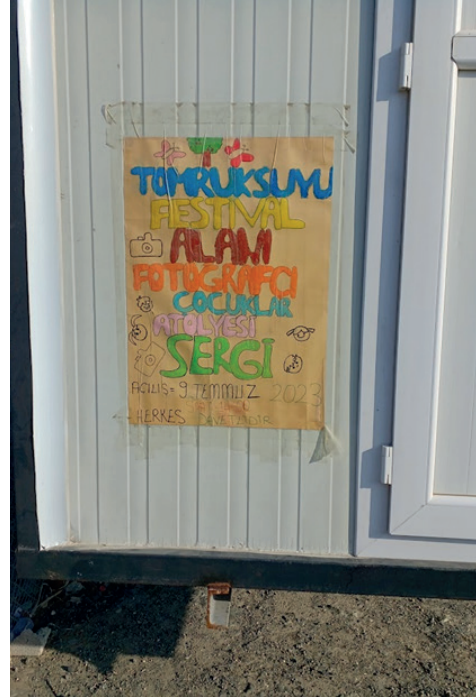 TOMRUKSUYU
FESTİVAL
ALANI
FOTOĞRAFÇI
ÇOCUKLAR
ATÖLYESİ
SERGİ
AÇILIŞ = 9 TEMMUZ 2023
HERKES DAVETLİDİR